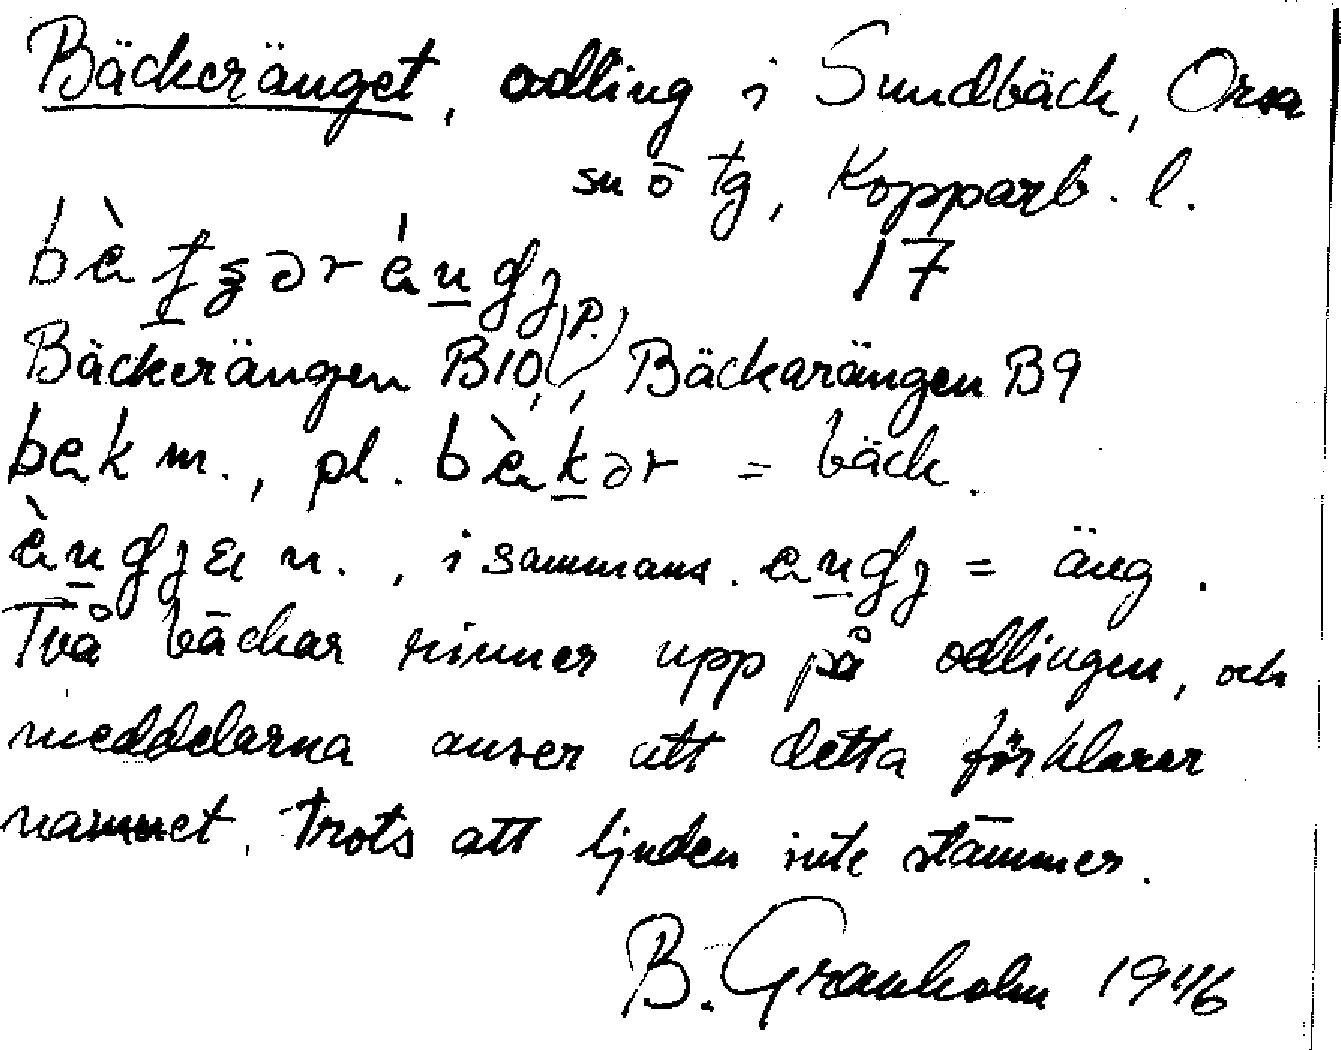 Bäckeränget, odling i Sundbäck, Orsa
sn ö tg, Kopparb. l.
17
Bäckerängen B10, (p.), Bäckarängen B9
bek m., pl. bèkər = bäck.
n., i sammans. = äng.
Två bäckar rinner upp på odlingen, och
meddelarna anser att detta förklarar
namnet, trots att ljuden inte stämmer.
B. Granholm 1946